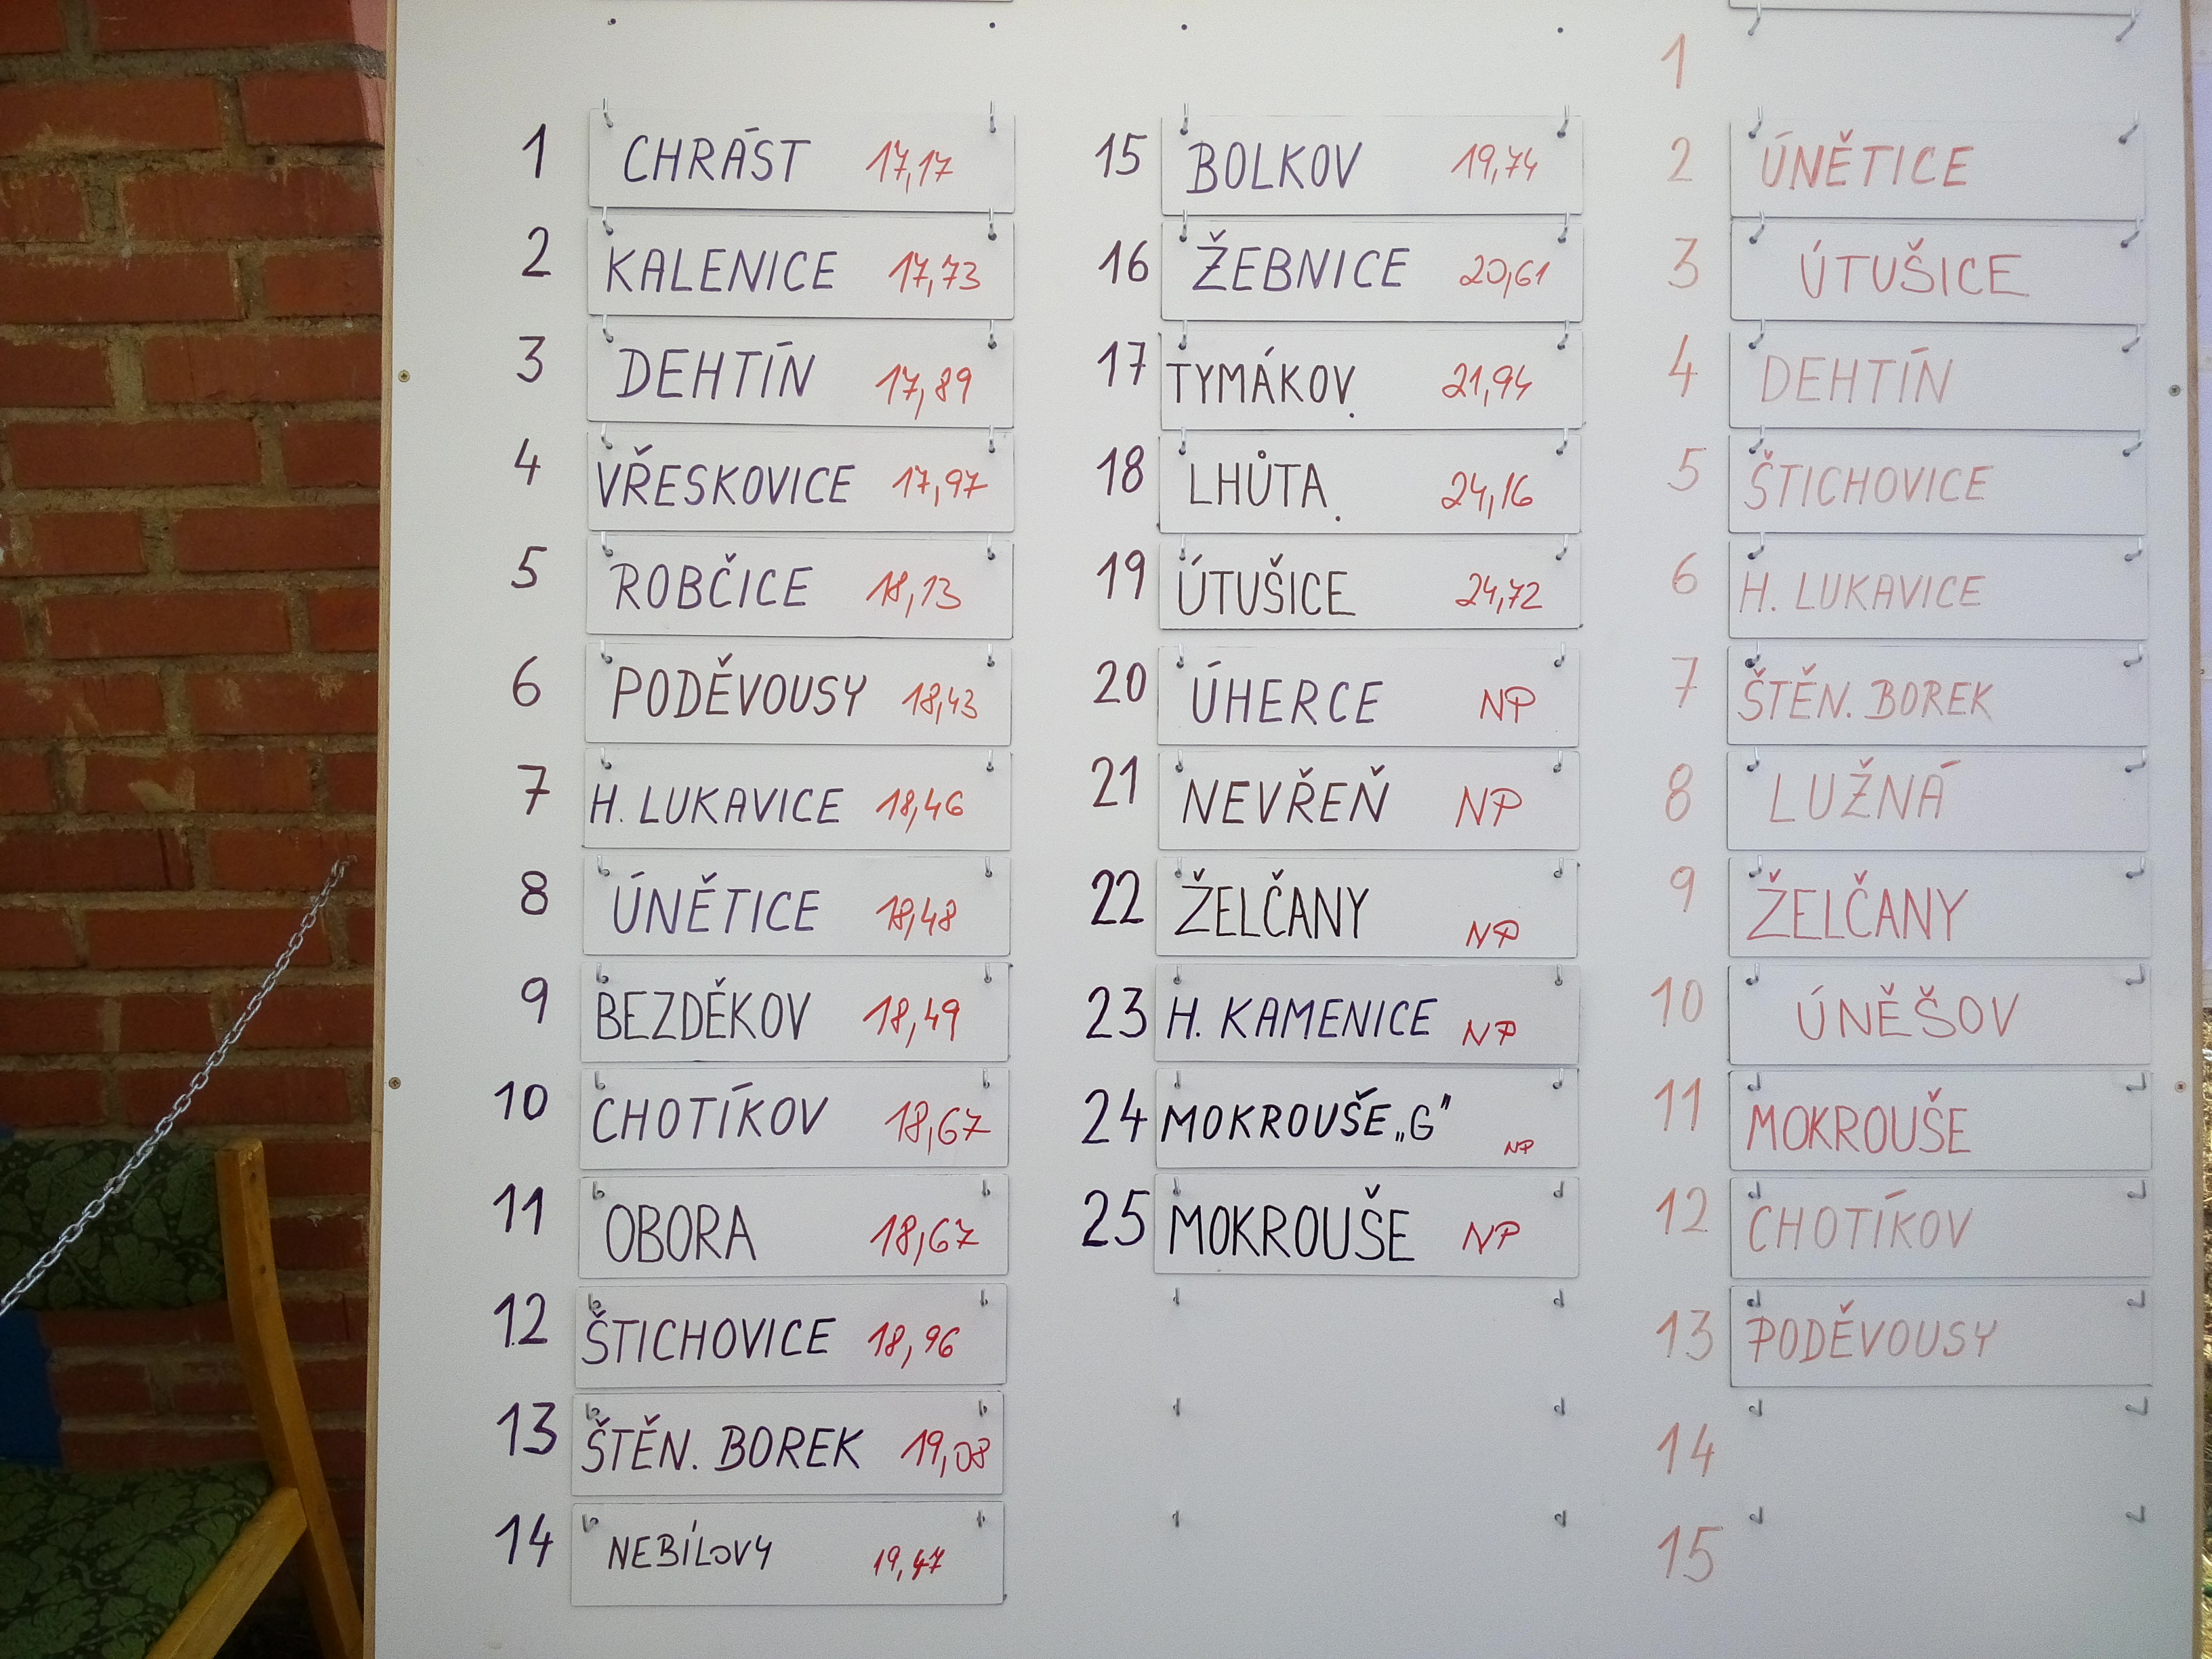 1 CHRÁST 17,17
2 KALENICE 17,73
3 DEHTÍN 17,89
4 VŘESKOVICE 17,97
5 ROBČICE 18,13
6 PODĚVOUSY 18,43
7 H. LUKAVICE 18,46
8 ÚNĚTICE 18,48
9 BEZDĚKOV 18,49
10 CHOTÍKOV 18,67
11 OBORA 18,67
12 ŠTICHOVICE 18,96
13 ŠTĚN. BOREK 19,08
14 NEBÍLOVY 19,47
15 BOLKOV 19,74
16 ŽEBNICE 20,61
17 TYMÁKOV. 21,94
18 LHŮTA. 24,16
19 ÚTUŠICE 24,72
20 ÚHERCE NP
21 NEVŘEŇ NP
22 ŽELČANY NP
23 H. KAMENICE NP
24 MOKROUŠE „G" NP
25 MOKROUŠE NP
1
2 ÚNĚTICE
3 ÚTUŠICE
4 DEHTÍN
5 ŠTICHOVICE
6 H. LUKAVICE
7 ŠTĚN. BOREK
8 LUŽNÁ
9 ŽELČANY
10 ÚNĚŠOV
11 MOKROUŠE
12 CHOTÍKOV
13 PODĚVOUSY
14
15